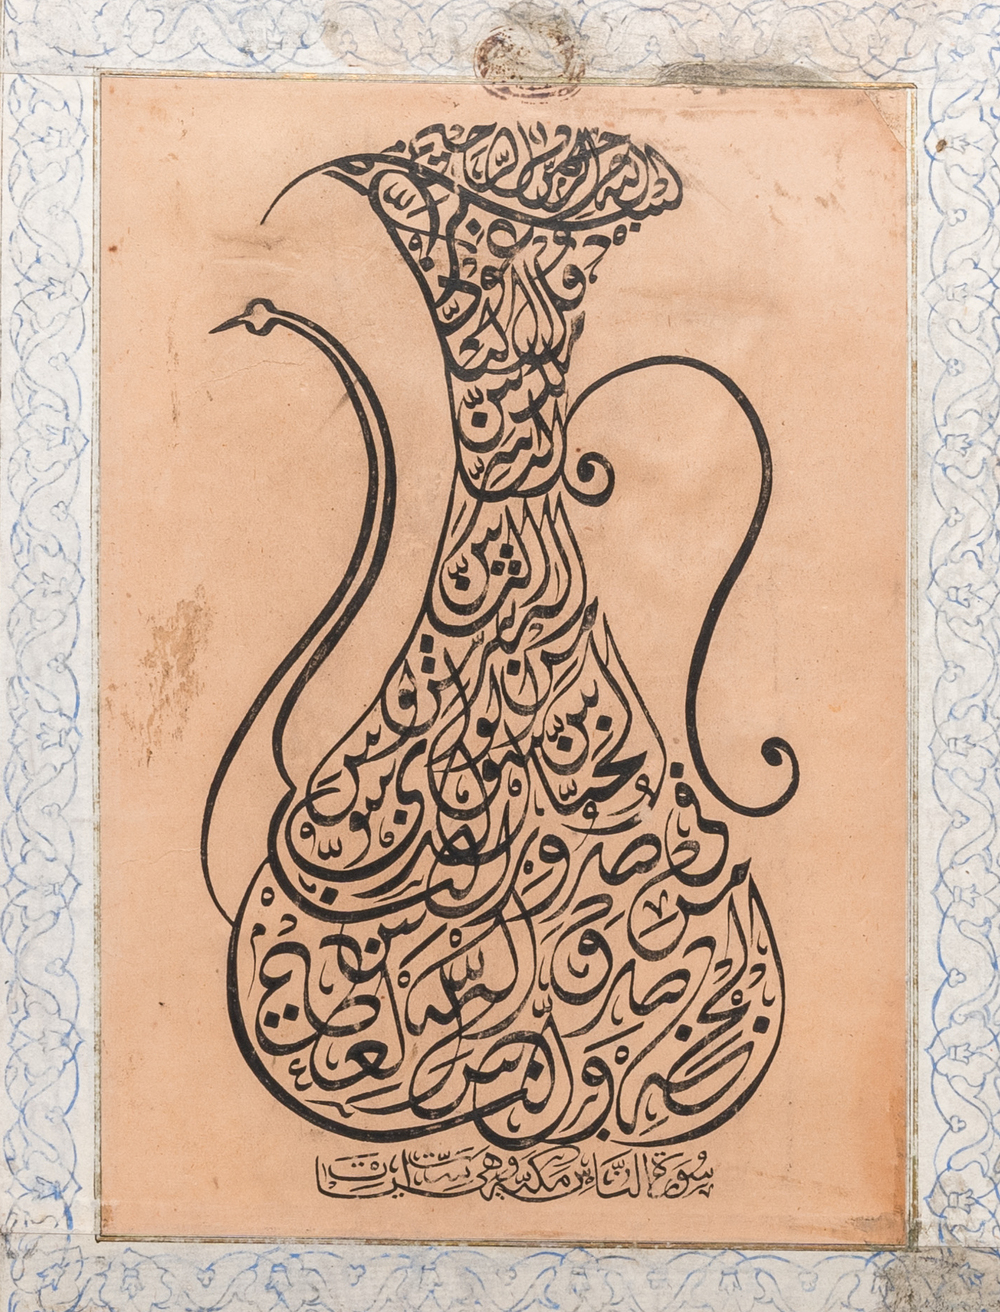 بسم الله الرحمن الرحيم
قل اعوذ برب
الناس
ملك الناس
اله الناس
من شر الوسواس
الخناس
الذي يوسوس
في صدور الناس
من الجنة والناس
صدق الله العظيم
سُورَة النَّاس مكية وهي ست ايات